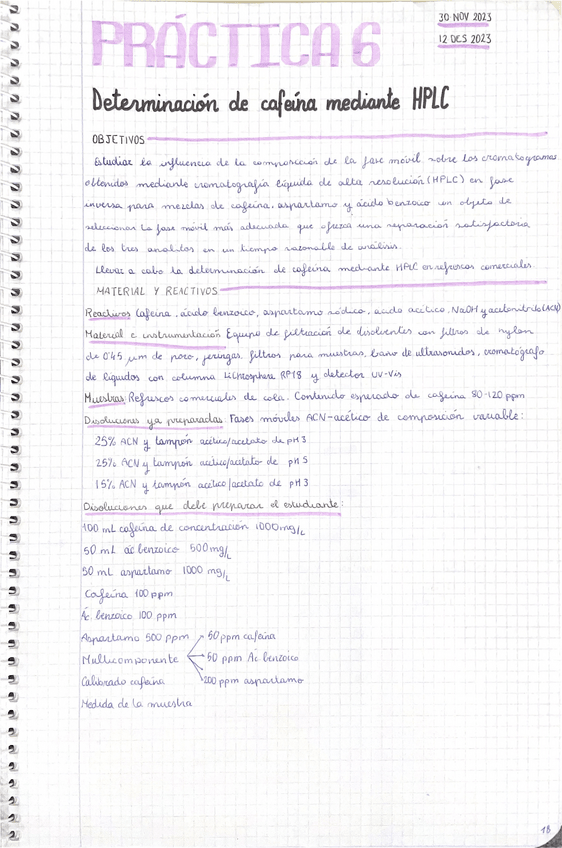 PRÁCTICA 6
30 NOV 2023
12 DES 2023
Determinación de cafeína mediante HPLC
OBJETIVOS
Estudiar la influencia de la composición de la fase móvil sobre los cromatogramas
obtenidos mediante cromatografía líquida de alta resolución (HPLC) en fase
inversa para mezclas de cafeína, aspartamo y ácido benzoico un objeto de
seleccionar la fase móvil más adecuada que ofrezca una separación satisfactoria
de los tres analitos en un tiempo razonable de análisis.
Llevar a cabo la determinación de cafeína mediante HPLC en refrescos comerciales
MATERIAL Y REACTIVOS
Reactivos Cafeína, ácido benzoico, aspartamo sódico, acido acético, NaOH y acetonitrilo (ACN)
Material e instrumentación Equipo de filtración de disolventes con filtros de nylon
de 0'45 μm de poro, jeringas, filtros para muestras, baño de ultrasonidos, cromatógrafo
de líquidos con columna Lichrosphere RP18 y detector UV-Vis
Muestras: Refrescos comerciales de cola. Contenido esperado de cafeína 80-120 ppm
Disoluciones ya preparadas: Fases móviles ACN-acético de composición variable:
25% ACN y tampón acético/acetato de pH 3
25% ACN y tampón acético/acetato de pH 5
15% ACN y tampón acético/acetato de pH 3
Disoluciones que debe preparar el estudiante:
100 mL cafeína de concentración 1000 mg/L
50 mL ác benzoico 500 mg/L
50 mL aspartamo 1000 mg/L
Cafeína 100 ppm
Ác. benzoico 100 ppm
Aspartamo 500 ppm
50 ppm cafeína
Multicomponente
50 ppm Ác benzoico
Calibrado cafeína
200 ppm aspartamo
Medida de la muestra
18